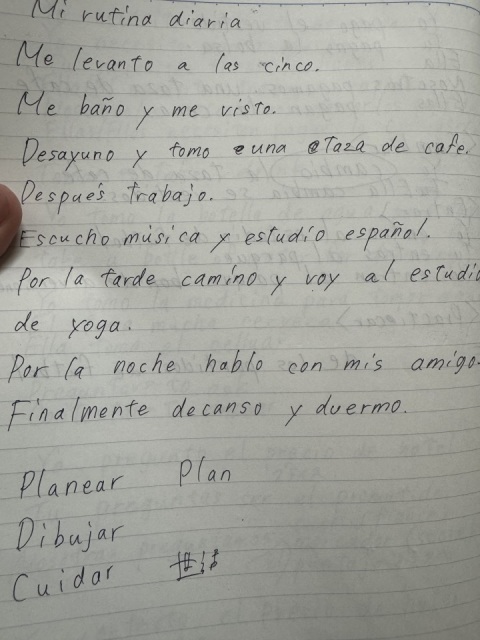 Mi rutina diaria
Me levanto a las cinco.
Me baño y me visto.
Desayuno y tomo una taza de cafe.
Después trabajo.
Escucho música y estudio español.
Por la tarde camino y voy al estudio
de yoga.
Por la noche hablo con mis amigo
Finalmente decanso y duermo.
Planear Plan
Dibujar
Cuidar